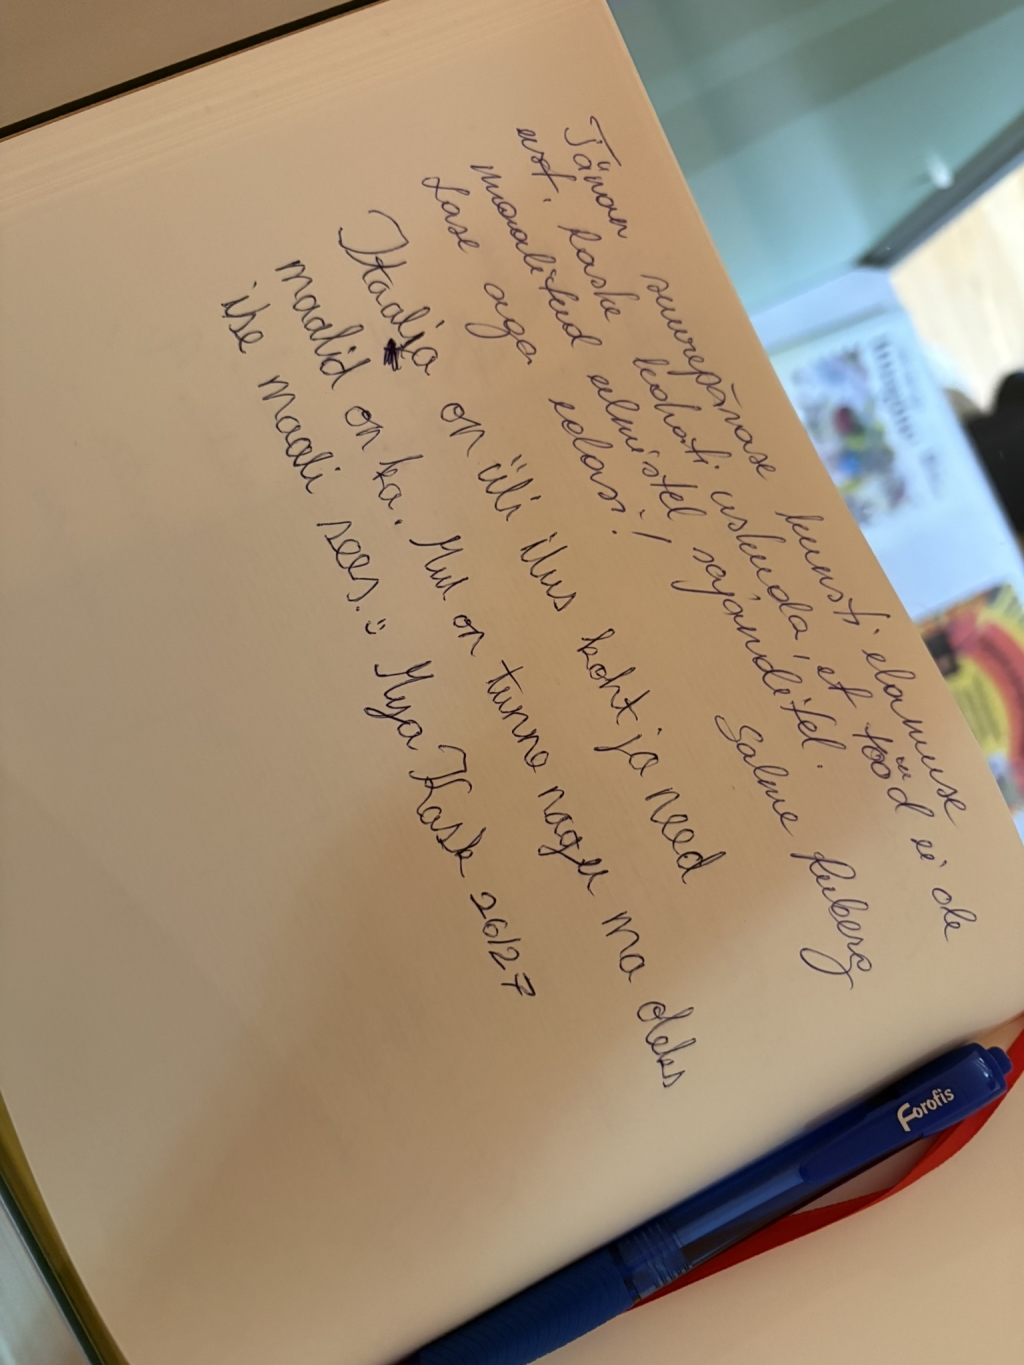 Tänan suurepärase kunsti elamuse
eest. Raske kohati uskuda, et tööd ei ole
maalitud eelmistel sajanditel.
Lase aga edasi! Salme Ruberg
Itaalja on üli ilus koht ja need
maalid on ka. Mul on tunne nagu ma oleks
ise maali sees. Mya Kask 26/27
Forofis